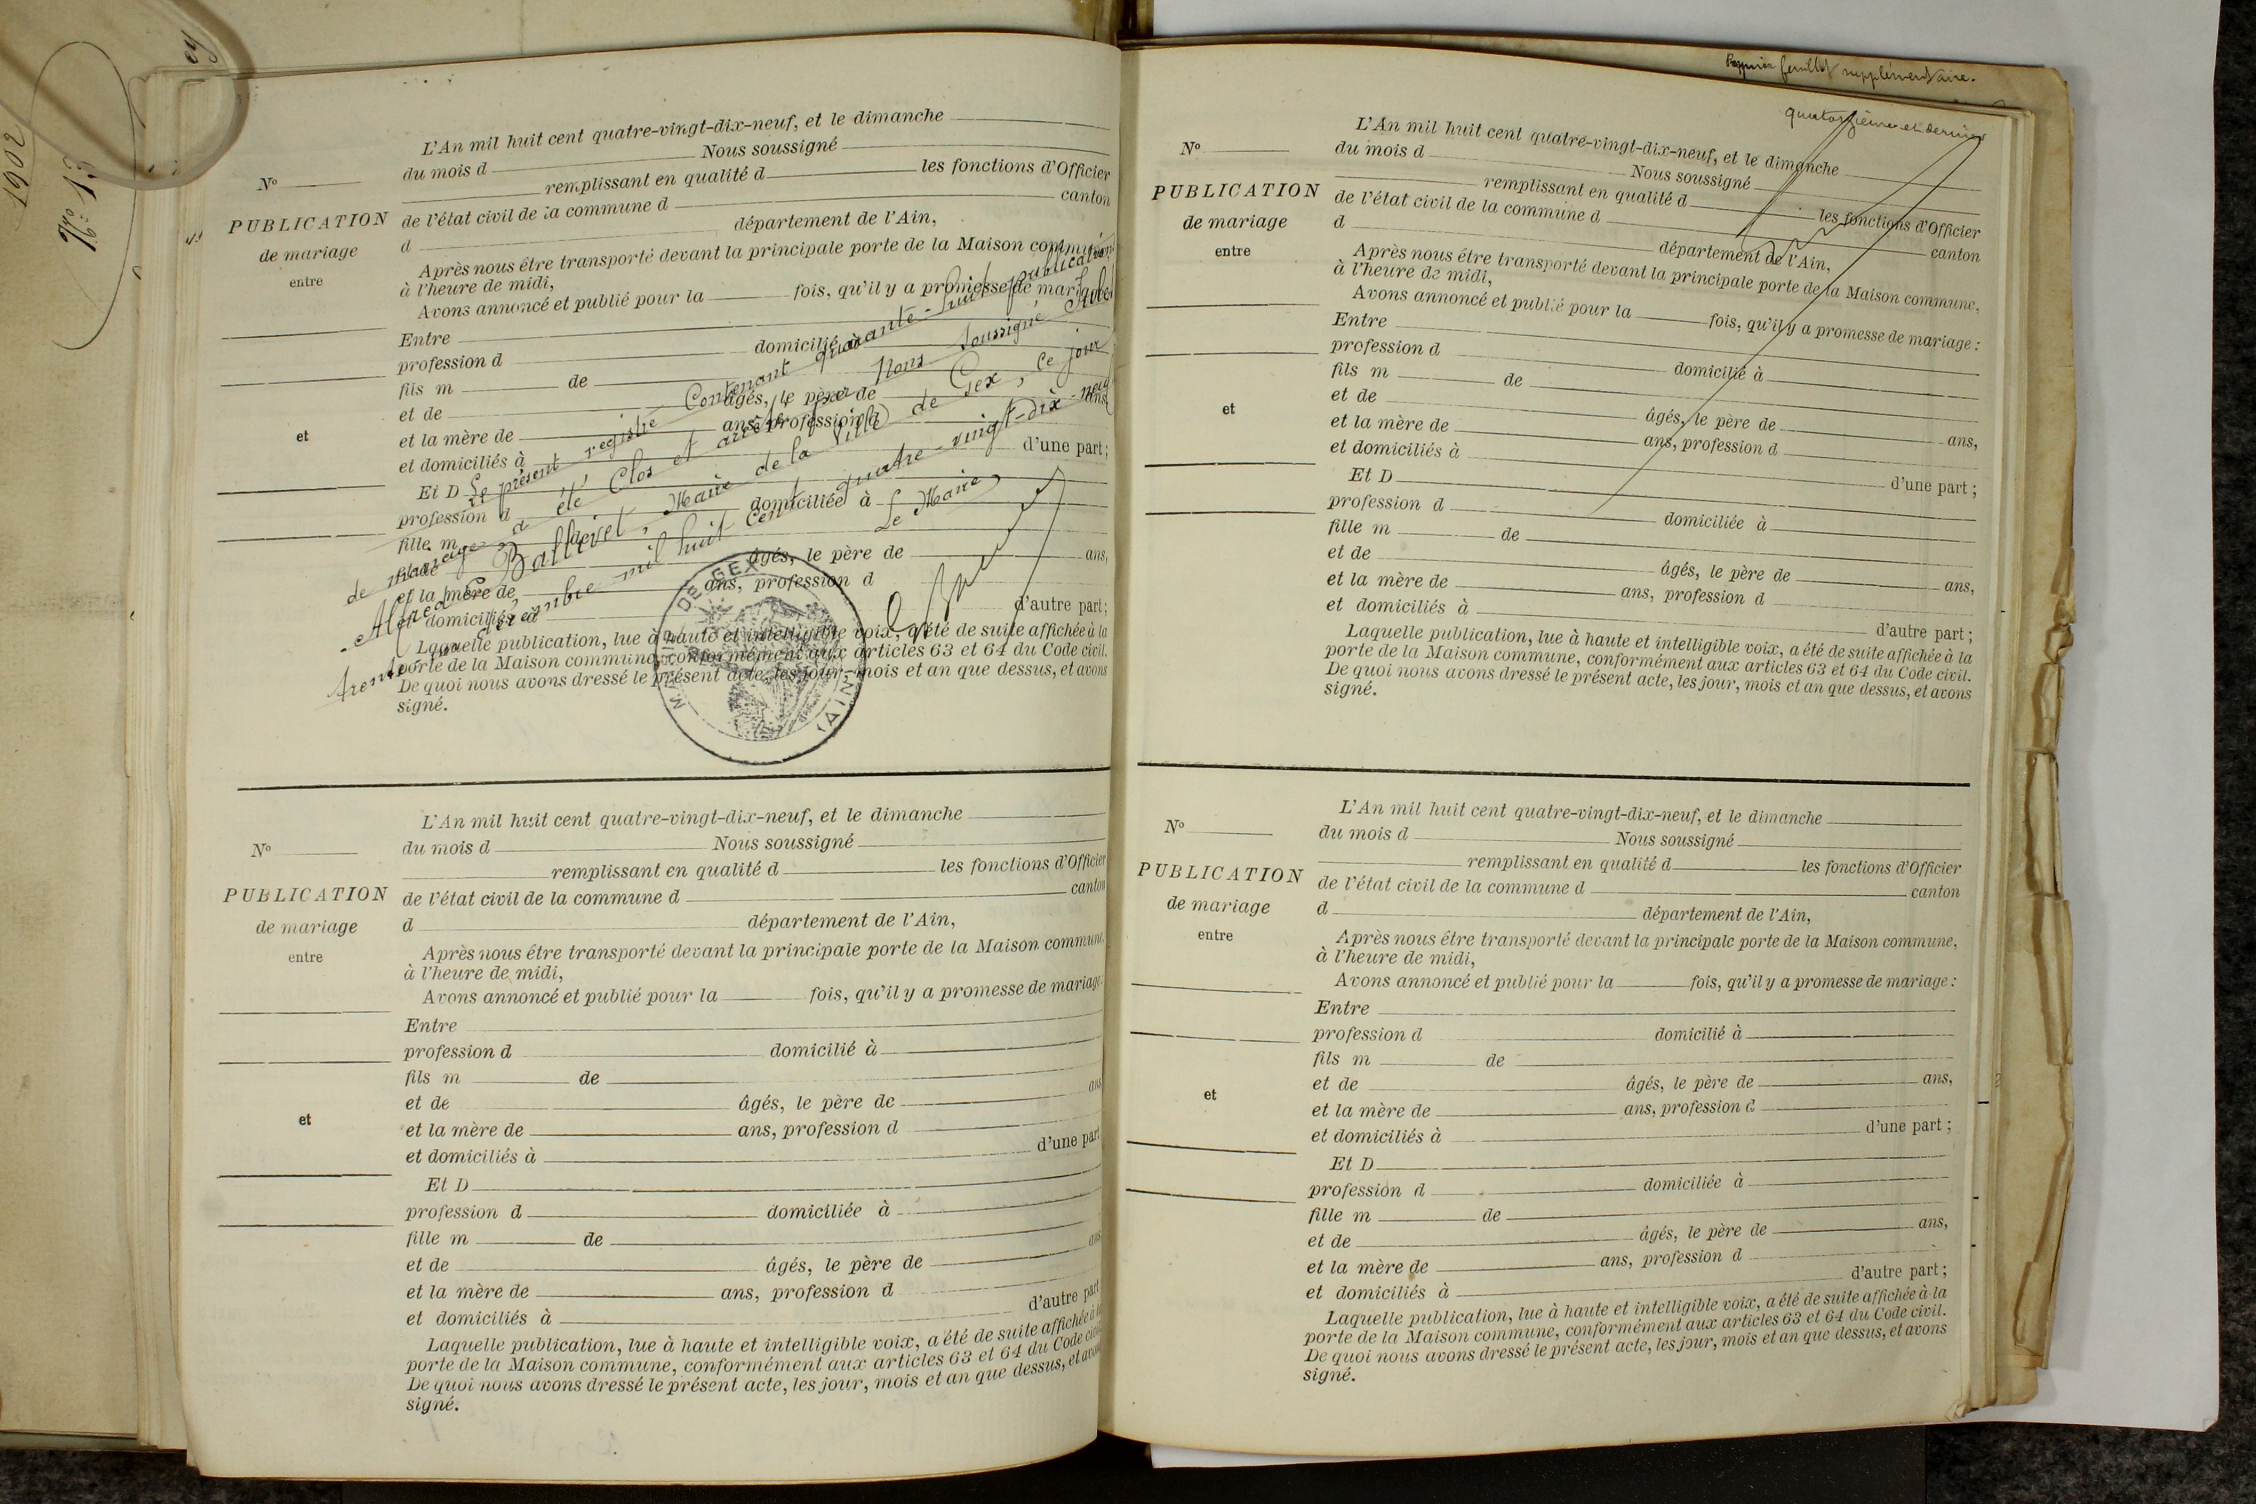 1902
Premier feuillet supplémentaire.
N°
PUBLICATION
de mariage
entre
et
L'An mil huit cent quatre-vingt-dix-neuf, et le dimanche
du mois d Nous soussigné
remplissant en qualité d les fonctions d'Officier
de l'état civil de la commune d canton
d département de l'Ain,
Après nous être transporté devant la principale porte de la Maison commune
à l'heure de midi,
Avons annoncé et publié pour la fois, qu'il y a promesse de mariage
Entre
profession d domicilié à
fils m de
et de âgés, le père de ans
et la mère de ans, profession d
et domiciliés à d'une part;
Et D
profession d domiciliée à
fille m de
et de âgés, le père de ans,
et la mère de ans, profession d
et domiciliés à d'autre part;
Laquelle publication, lue à haute et intelligible voix, a été de suite affichée à la
porte de la Maison commune, conformément aux articles 63 et 64 du Code civil.
De quoi nous avons dressé le présent acte, les jour, mois et an que dessus, et avons
signé.
Le présent registre Contenant quarante-huit publications
de mariage a été Clos et arrêté par Nous Soussigné
Alfred Ballivet, Maire de la Ville de Gex, ce jour
trente un décembre mil huit cent quatre-vingt-dix-neuf
Le Maire
MAIRIE DE GEX (AIN)
N°
PUBLICATION
de mariage
entre
et
L'An mil huit cent quatre-vingt-dix-neuf, et le dimanche
du mois d Nous soussigné
remplissant en qualité d les fonctions d'Officier
de l'état civil de la commune d canton
d département de l'Ain,
Après nous être transporté devant la principale porte de la Maison commune
à l'heure de midi,
Avons annoncé et publié pour la fois, qu'il y a promesse de mariage
Entre
profession d domicilié à
fils m de
et de âgés, le père de ans
et la mère de ans, profession d
et domiciliés à d'une part
Et D
profession d domiciliée à
fille m de
et de âgés, le père de ans
et la mère de ans, profession d
et domiciliés à d'autre part
Laquelle publication, lue à haute et intelligible voix, a été de suite affichée à la
porte de la Maison commune, conformément aux articles 63 et 64 du Code civil
De quoi nous avons dressé le présent acte, les jour, mois et an que dessus, et avons
signé.
quatorzième et dernier
N°
PUBLICATION
de mariage
entre
et
L'An mil huit cent quatre-vingt-dix-neuf, et le dimanche
du mois d Nous soussigné
remplissant en qualité d les fonctions d'Officier
de l'état civil de la commune d canton
d département de l'Ain,
Après nous être transporté devant la principale porte de la Maison commune,
à l'heure de midi,
Avons annoncé et publié pour la fois, qu'il y a promesse de mariage :
Entre
profession d domicilié à
fils m de
et de âgés, le père de ans,
et la mère de ans, profession d
et domiciliés à d'une part ;
Et D
profession d domiciliée à
fille m de
et de âgés, le père de ans,
et la mère de ans, profession d
et domiciliés à d'autre part ;
Laquelle publication, lue à haute et intelligible voix, a été de suite affichée à la
porte de la Maison commune, conformément aux articles 63 et 64 du Code civil.
De quoi nous avons dressé le présent acte, les jour, mois et an que dessus, et avons
signé.
N°
PUBLICATION
de mariage
entre
et
L'An mil huit cent quatre-vingt-dix-neuf, et le dimanche
du mois d Nous soussigné
remplissant en qualité d les fonctions d'Officier
de l'état civil de la commune d canton
d département de l'Ain,
Après nous être transporté devant la principale porte de la Maison commune,
à l'heure de midi,
Avons annoncé et publié pour la fois, qu'il y a promesse de mariage :
Entre
profession d domicilié à
fils m de
et de âgés, le père de ans,
et la mère de ans, profession d
et domiciliés à d'une part ;
Et D
profession d domiciliée à
fille m de
et de âgés, le père de ans,
et la mère de ans, profession d
et domiciliés à d'autre part ;
Laquelle publication, lue à haute et intelligible voix, a été de suite affichée à la
porte de la Maison commune, conformément aux articles 63 et 64 du Code civil.
De quoi nous avons dressé le présent acte, les jour, mois et an que dessus, et avons
signé.